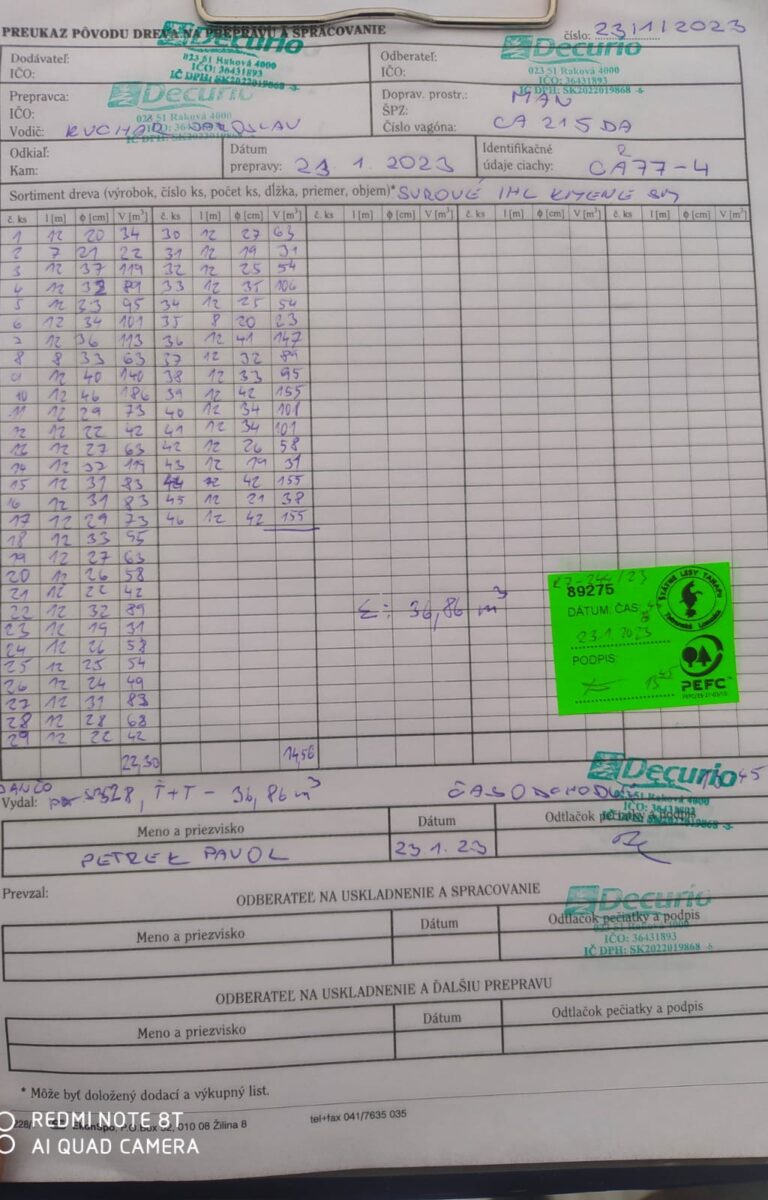 PREUKAZ PÔVODU DREVA NA PREPRAVU A SPRACOVANIE
číslo: 23/1/2023
Decurio
023 51 Raková 4000
IČO: 36431893
IČ DPH: SK2022019868
Decurio
023 51 Raková 4000
IČO: 36431893
IČ DPH: SK2022019868 -6
Dodávateľ:
IČO:
Odberateľ:
IČO:
Prepravca:
IČO:
Vodič: KUCHAR JAROSLAV
Decurio
023 51 Raková 4000
Doprav. prostr.: MAN
ŠPZ:
Číslo vagóna: CA 215 DA
Odkiaľ:
Kam:
Dátum
prepravy: 23 1. 2023
Identifikačné
údaje ciachy: CA77-4
Sortiment dreva (výrobok, číslo ks, počet ks, dĺžka, priemer, objem)* SUROVÉ IHL KMENE SM
č. ks l [m] ϕ [cm] V [m³] č. ks l [m] ϕ [cm] V [m³] č. ks l [m] ϕ [cm] V [m³] č. ks l [m] ϕ [cm] V [m³] č. ks l [m] ϕ [cm] V [m³]
1 12 20 34 30 12 27 63
2 7 21 22 31 12 19 31
3 12 37 119 32 12 25 54
4 12 32 89 33 12 35 106
5 12 33 95 34 12 25 54
6 12 34 101 35 8 20 23
7 12 36 113 36 12 41 147
8 8 33 63 37 12 32 89
9 12 40 140 38 12 33 95
10 12 46 186 39 12 42 155
11 12 29 73 40 12 34 101
12 12 22 42 41 12 34 101
13 12 27 63 42 12 26 58
14 12 37 119 43 12 19 31
15 12 31 83 44 12 42 155
16 12 31 83 45 12 21 38
17 12 29 73 46 12 42 155
18 12 33 95
19 12 27 63
20 12 26 58
21 12 22 42
22 12 32 89
23 12 19 31
24 12 26 58
25 12 25 54
26 12 24 49
27 12 31 83
28 12 28 68
29 12 22 42
Σ: 36,86 m³
89275
DÁTUM, ČAS
23.1.2023
PODPIS:
13 45
ŠTÁTNE LESY TANAPU
PEFC
22,30 14,56
Vydal:
Ť+T - 36,86 m³
ČAS ODCHODU
45
Decurio
023 51 Raková 4000
IČ DPH: SK2022019868 -6
Meno a priezvisko Dátum Odtlačok pečiatky a podpis
PETREK PAVOL 23.1.23
Prevzal:
ODBERATEĽ NA USKLADNENIE A SPRACOVANIE
Meno a priezvisko Dátum Odtlačok pečiatky a podpis
Decurio
023 51 Raková 4000
IČO: 36431893
IČ DPH: SK2022019868 -6
ODBERATEĽ NA USKLADNENIE A ĎALŠIU PREPRAVU
Meno a priezvisko Dátum Odtlačok pečiatky a podpis
* Môže byť doložený dodací a výkupný list.
EkonSpo, P.O.Box 32, 010 08 Žilina 8
tel+fax 041/7635 035
REDMI NOTE 8T
AI QUAD CAMERA